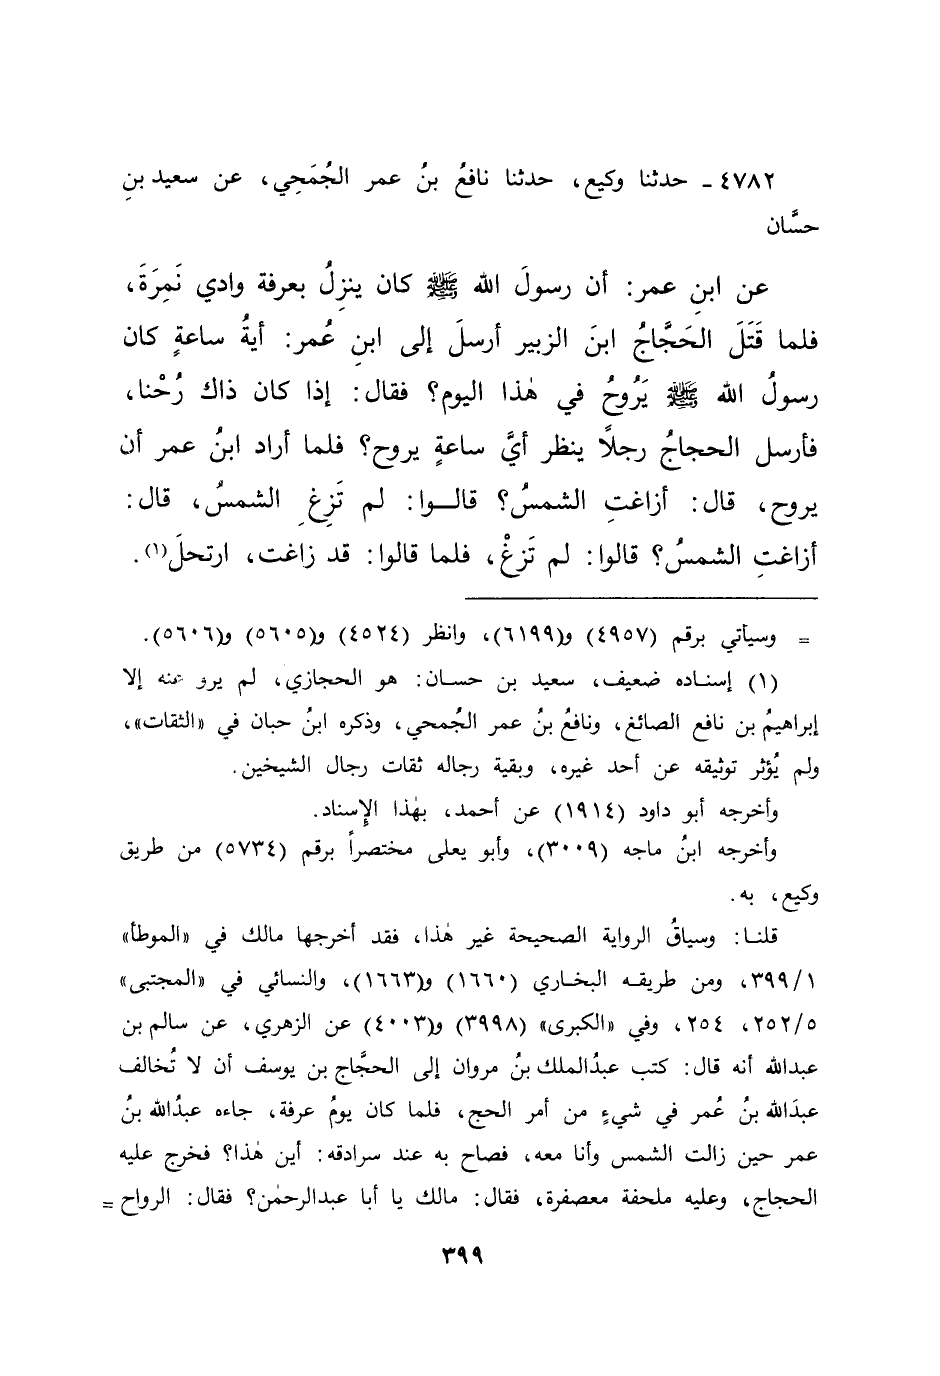 ٤٧٨٢ ـ حدثنا وكيع، حدثنا نافعُ بنُ عمر الجُمَحِي، عن سعيد بنِ
حسَّان
عن ابنِ عمر: أن رسولَ الله ﷺ كان ينزِلُ بعرفة وادي نَمِرَةَ،
فلما قَتَلَ الحَجَّاجُ ابنَ الزبير أرسلَ إلى ابنِ عُمر: أيةُ ساعةٍ كان
رسولُ الله ﷺ يَرُوحُ في هٰذا اليوم؟ فقال: إذا كان ذاك رُحْنا،
فأرسل الحجاجُ رجلًا ينظر أيَّ ساعةٍ يروح؟ فلما أراد ابنُ عمر أن
يروح، قال: أزاغتِ الشمسُ؟ قالــوا: لم تَزِغِ الشمسُ، قال:
أزاغتِ الشمسُ؟ قالوا: لم تَزِغْ، فلما قالوا: قد زاغت، ارتحلَ(١).
= وسيأتي برقم (٤٩٥٧) و(٦١٩٩)، وانظر (٤٥٢٤) و(٥٦٠٥) و(٥٦٠٦).
(١) إسناده ضعيف، سعيد بن حسان: هو الحجازي، لم يرو عنه إلا
إبراهيمُ بن نافع الصائغ، ونافعُ بنُ عمر الجُمحي، وذكره ابنُ حبان في «الثقات»،
ولم يُؤثر توثيقه عن أحد غيره، وبقية رجاله ثقات رجال الشيخين.
وأخرجه أبو داود (١٩١٤) عن أحمد، بهٰذا الإِسناد.
وأخرجه ابنُ ماجه (٣٠٠٩)، وأبو يعلى مختصراً برقم (٥٧٣٤) من طريق
وكيع، به.
قلنا: وسياقُ الرواية الصحيحة غير هٰذا، فقد أخرجها مالك في «الموطأ»
٣٩٩/١، ومن طريقه البخاري (١٦٦٠) و(١٦٦٣)، والنسائي في «المجتبى»
٢٥٢/٥، ٢٥٤، وفي «الكبرى» (٣٩٩٨) و(٤٠٠٣) عن الزهري، عن سالم بن
عبدالله أنه قال: كتب عبدُالملك بنُ مروان إلى الحجَّاج بن يوسف أن لا تُخالف
عبدَالله بنُ عُمر في شيءٍ من أمر الحج، فلما كان يومُ عرفة، جاءه عبدُالله بنُ
عمر حين زالت الشمس وأنا معه، فصاح به عند سرادقه: أين هٰذا؟ فخرج عليه
الحجاج، وعليه ملحفة معصفرة، فقال: مالك يا أبا عبدالرحمٰن؟ فقال: الرواح =
٣٩٩